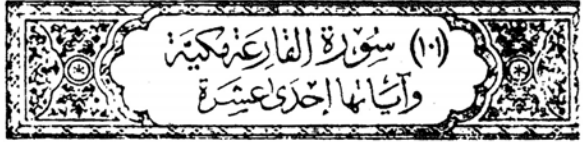 (١٠١) سُوْرَةُ الْقَارِعَةِ مَكِيَّة
وَآيَاتُهَا إِحْدَىٰ عَشِرَة